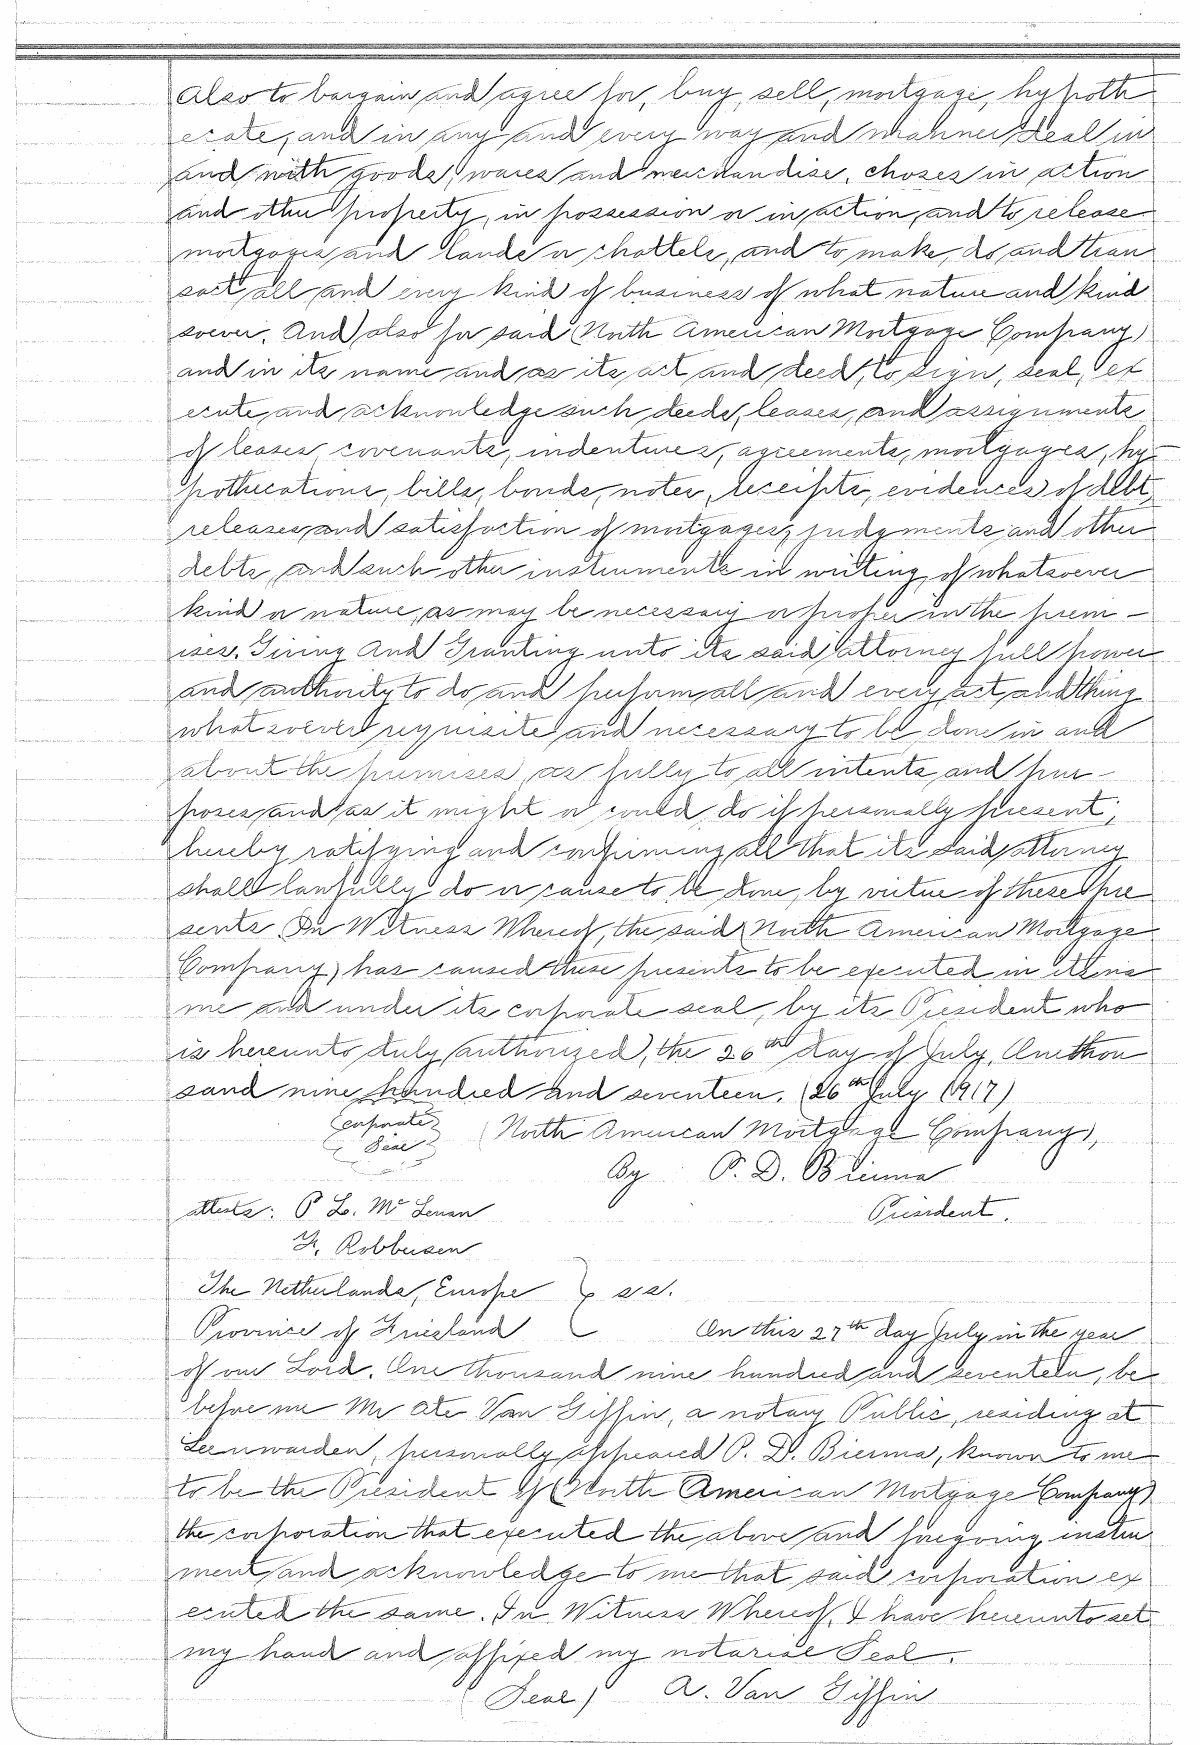 Also to bargain and agree for, buy, sell, mortgage, hypoth
ecate, and in any and every way and manner deal in
and with goods, wares and merchandise, choses in action
and other property, in possession or in action, and to release
mortgages and lands or chattels, and to make, do and tran
sact all and every kind of business of what nature and kind
soever. And also for said (North American Mortgage Company)
and in its name and as its act and deed, to sign, seal, ex
ecute, and acknowledge such deeds, leases, and assignments
of leases, covenants, indentures, agreements, mortgages, hy-
pothecations, bills, bonds, notes, receipts, evidences of debt,
releases and satisfaction of mortgages, judgments and other
debts, and such other instruments in writing, of whatsoever
kind or nature, as may be necessary or proper in the prem-
ises. Giving and Granting unto its said attorney full power
and authority to do and perform all and every act and thing
whatsoever requisite and necessary to be done in and
about the premises, as fully to all intents and pur-
poses, and as it might or could do if personally present;
hereby ratifying and confirming all that its said attorney
shall lawfully do or cause to be done, by virtue of these pre
sents. In Witness Whereof, the said (North American Mortgage
Company) has caused these presents to be executed in its na
me and under its corporate seal, by its President who
is hereunto duly authorized, the 26th day of July, One thou
sand nine hundred and seventeen. (26th July 1917)
Corporate Seal (North American Mortgage Company),
By P. D. Bierma
attests: P L. Mc Lenan President.
F. Robbersen
The Netherlands, Europe } s.s.
Province of Friesland On this 27th day July in the year
of our Lord, One thousand nine hundred and seventeen, be-
before me Mr Ate Van Giffin, a notary Public, residing at
Leenwarden, personally appeared P. D. Bierma, known to me
to be the President of (North American Mortgage Company)
the corporation that executed the above and foregoing instru
ment and acknowledge to me that said corporation ex
ecuted the same. In Witness Whereof, I have hereunto set
my hand and affixed my notarial Seal.
(Seal) A. Van Giffin